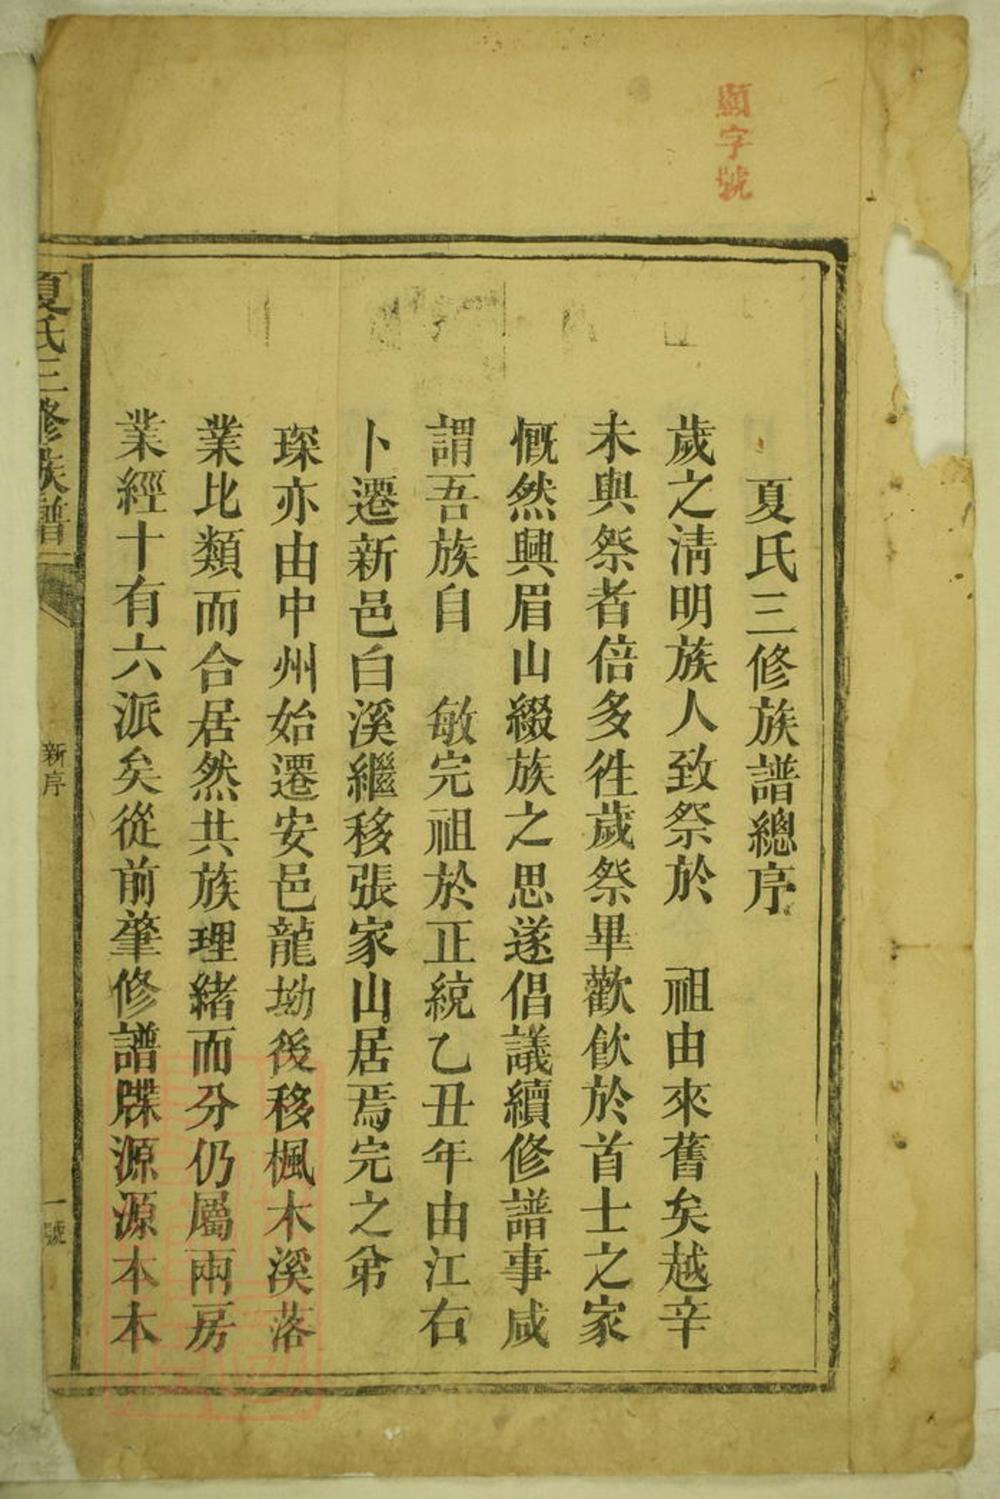 顯字號
夏氏三修族譜總序
歲之淸明族人致祭於　祖由來舊矣越辛
未與祭者倍多徃歲祭畢歡飮於首士之家
慨然興眉山綴族之思遂倡議續修譜事咸
謂吾族自　敏完祖於正統乙丑年由江右
卜遷新邑白溪繼移張家山居焉完之弟
琛亦由中州始遷安邑龍坳後移楓木溪落
業比類而合居然共族理緒而分仍屬兩房
業經十有六派矣從前肇修譜牒源源本本
夏氏三修族譜
新序
一號